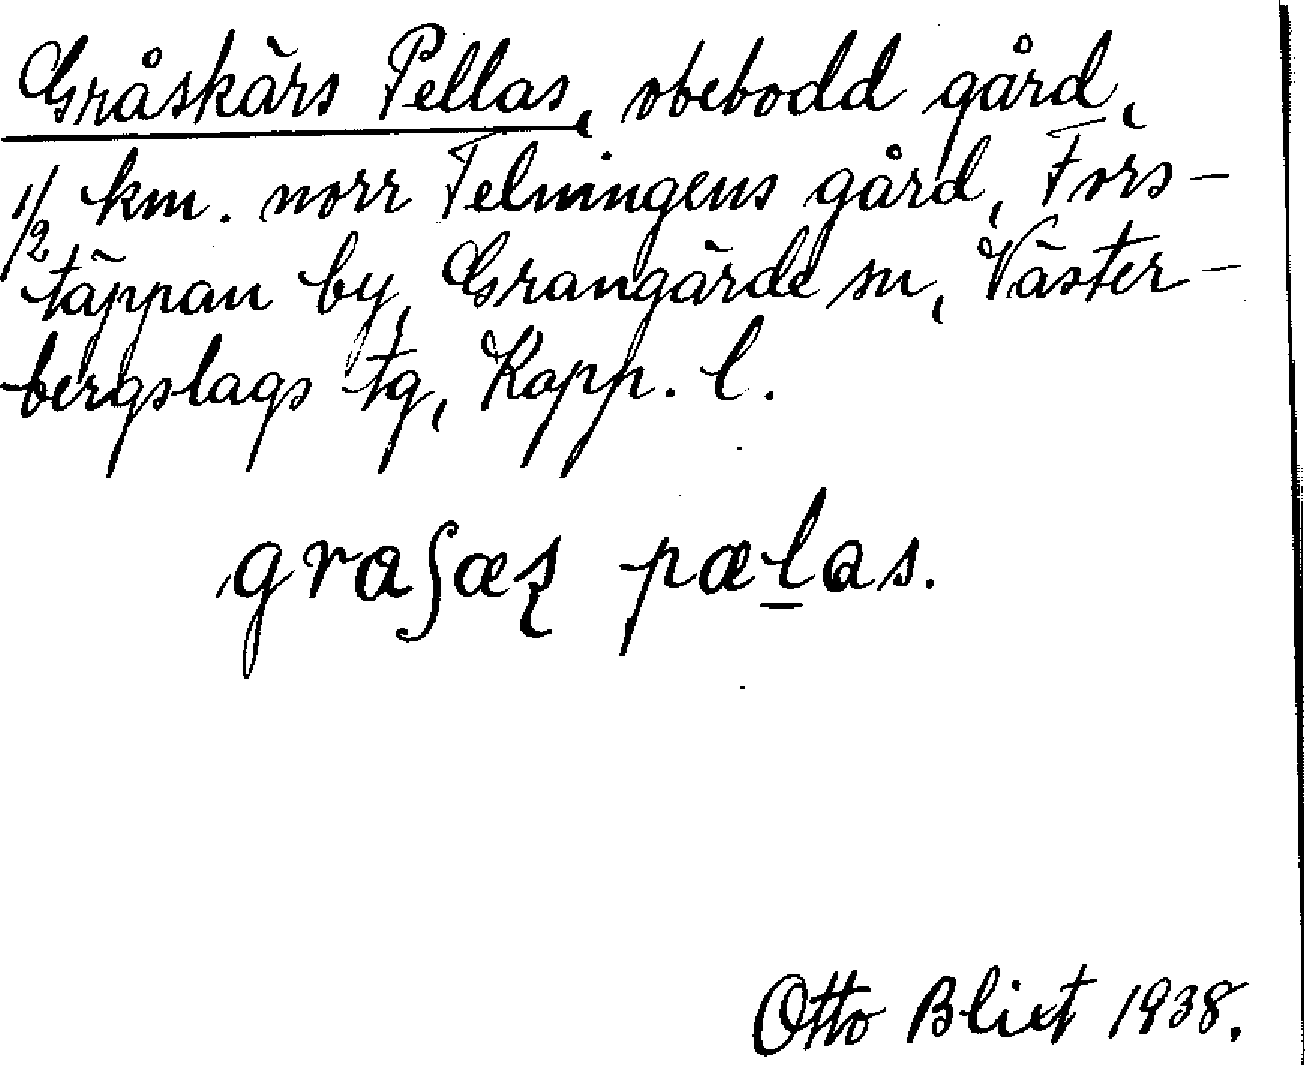 Gråskärs Pellas, obebodd gård,
1/2 km. norr Telningens gård, Fors-
täppan by, Grangärde sn, Väster-
bergslags tg, Kopp. l.
graʃæʂ pælas.
Otto Blixt 1938.